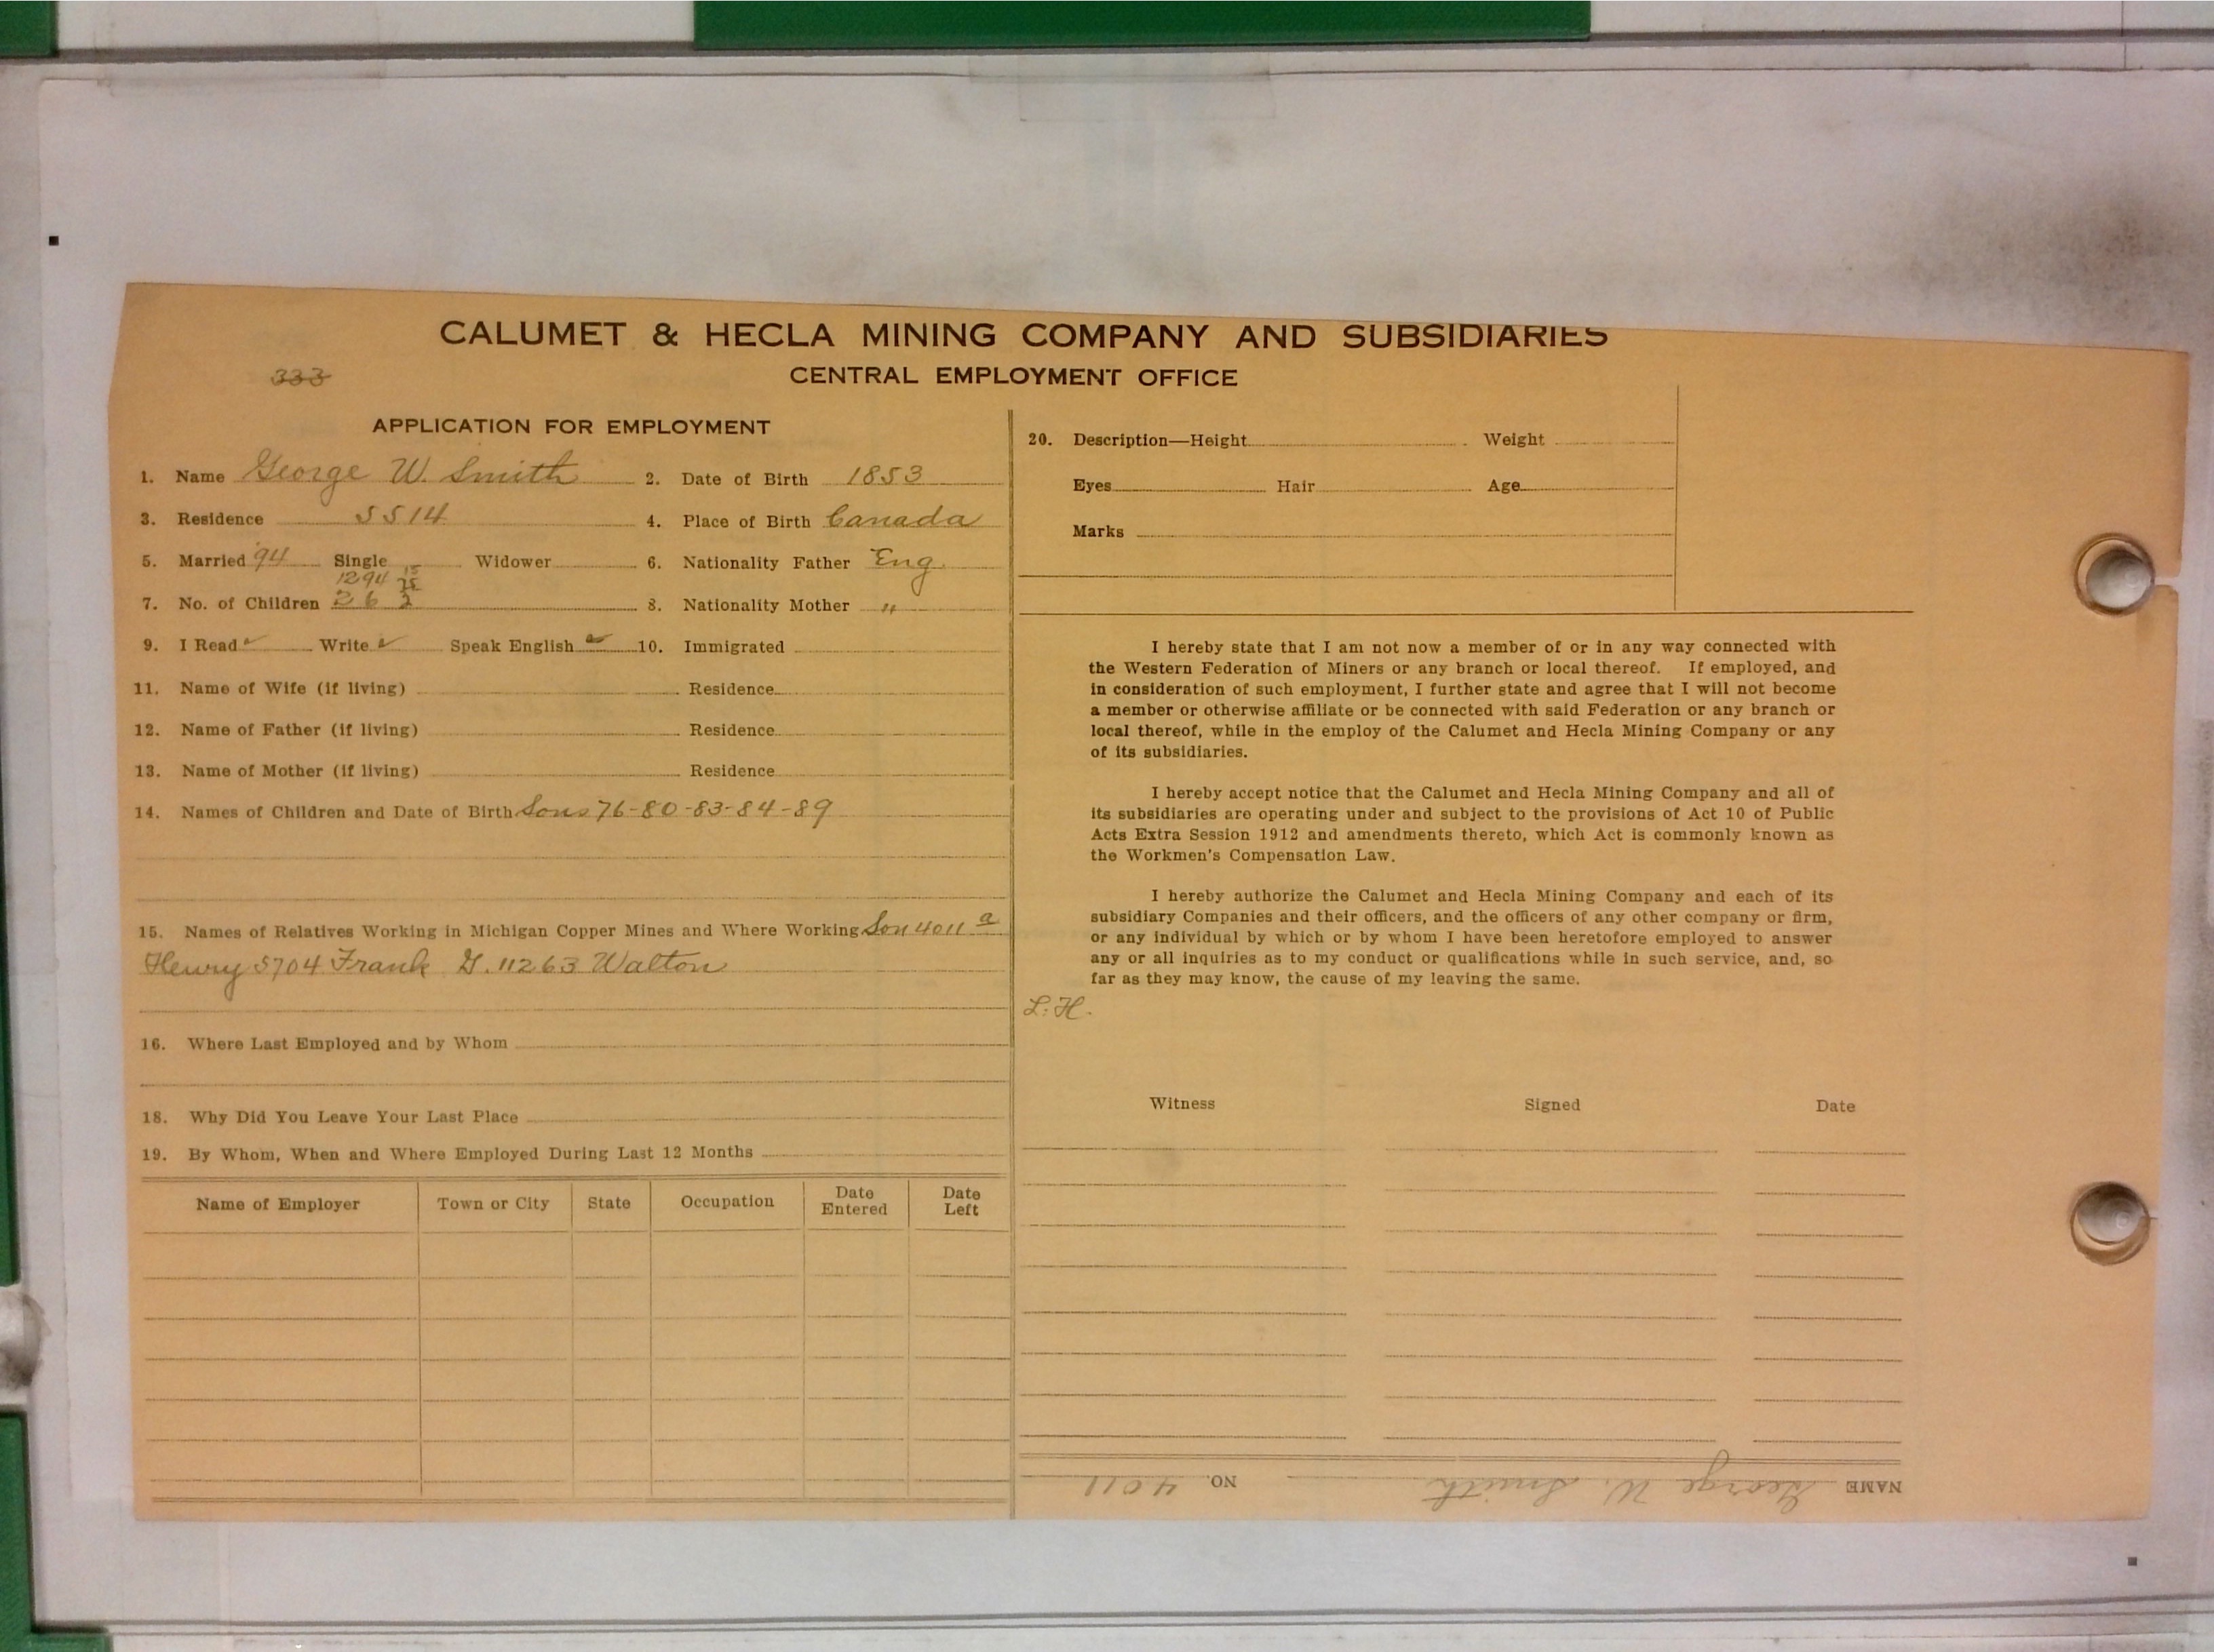 CALUMET & HECLA MINING COMPANY AND SUBSIDIARIES
333
CENTRAL EMPLOYMENT OFFICE
APPLICATION FOR EMPLOYMENT
1. Name George W. Smith 2. Date of Birth 1853
3. Residence 5514 4. Place of Birth Canada
5. Married '94 Single Widower 6. Nationality Father Eng.
1294 15
7. No. of Children 26 2 8. Nationality Mother "
9. I Read Write Speak English 10. Immigrated
11. Name of Wife (if living) Residence
12. Name of Father (if living) Residence
13. Name of Mother (if living) Residence
14. Names of Children and Date of Birth Sons 76-80-83-84-89
15. Names of Relatives Working in Michigan Copper Mines and Where Working Son 4011 a
Henry 5704 Frank G. 11263 Walton
16. Where Last Employed and by Whom
18. Why Did You Leave Your Last Place
19. By Whom, When and Where Employed During Last 12 Months
Name of Employer Town or City State Occupation Date Entered Date Left
20. Description—Height Weight
Eyes Hair Age
Marks
I hereby state that I am not now a member of or in any way connected with
the Western Federation of Miners or any branch or local thereof. If employed, and
in consideration of such employment, I further state and agree that I will not become
a member or otherwise affiliate or be connected with said Federation or any branch or
local thereof, while in the employ of the Calumet and Hecla Mining Company or any
of its subsidiaries.
I hereby accept notice that the Calumet and Hecla Mining Company and all of
its subsidiaries are operating under and subject to the provisions of Act 10 of Public
Acts Extra Session 1912 and amendments thereto, which Act is commonly known as
the Workmen's Compensation Law.
I hereby authorize the Calumet and Hecla Mining Company and each of its
subsidiary Companies and their officers, and the officers of any other company or firm,
or any individual by which or by whom I have been heretofore employed to answer
any or all inquiries as to my conduct or qualifications while in such service, and, so
far as they may know, the cause of my leaving the same.
L.H.
Witness Signed Date
NAME George W. Smith NO. 4011